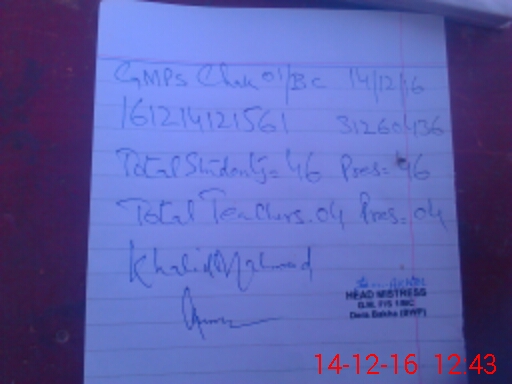 GMPS Chak 01/BC 14/12/16
161214121561 31260136
Total Students= 46 Pres= 46
Total Teachers. 04 Pres= 04
Khalid Mahmood
HEAD MISTRESS
G.M. P/S 1/BC
Dera Bakha (BWP)
14-12-16 12:43